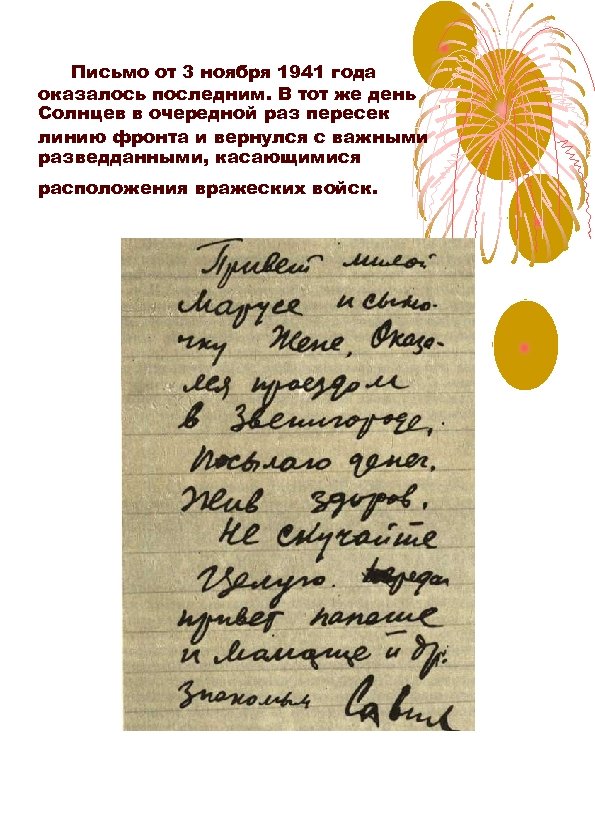 Письмо от 3 ноября 1941 года
оказалось последним. В тот же день
Солнцев в очередной раз пересек
линию фронта и вернулся с важными
разведданными, касающимися
расположения вражеских войск.
Привет милой
Марусе и сыно-
чку Жене, Оказа-
лся проездом
в Звенигороде,
Посылаю денег.
Жив здоров.
Не скучайте
Целую. передай
привет папаше
и мамаше и др.
знакомым Савел